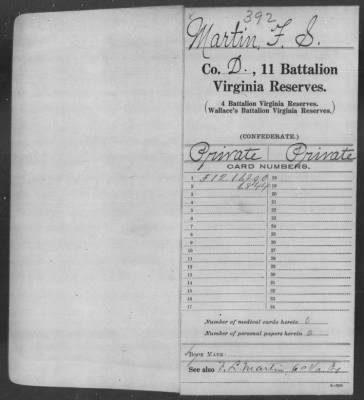 392
Martin, F. S.
Co. D., 11 Battalion
Virginia Reserves.
(4 Battalion Virginia Reserves.
Wallace's Battalion Virginia Reserves.)
(CONFEDERATE.)
Private Private
CARD NUMBERS.
1 18
2 19
3 20
4 21
5 22
6 23
7 24
8 25
9 26
10 27
11 28
12 29
13 30
14 31
15 32
16 33
17 34
Number of medical cards herein 0
Number of personal papers herein
BOOK MARK:
See also Martin, 60 Va.